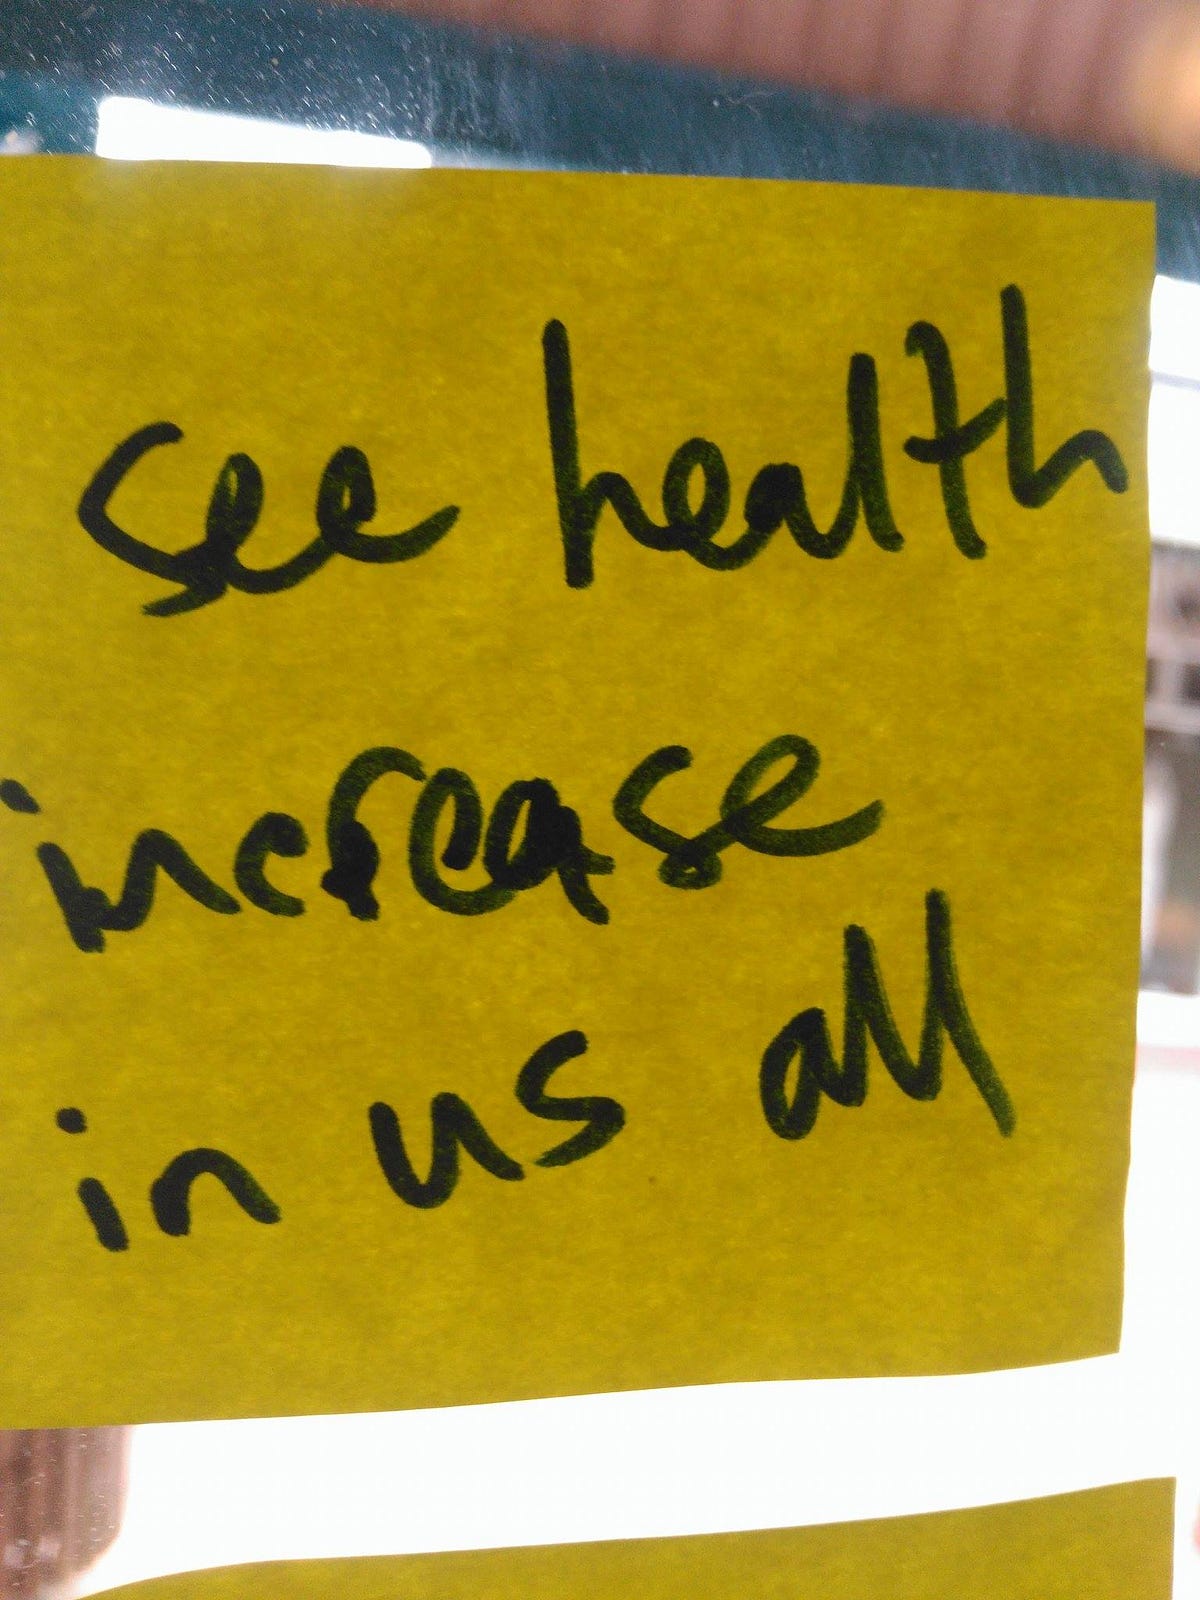 see health
increase
in us all